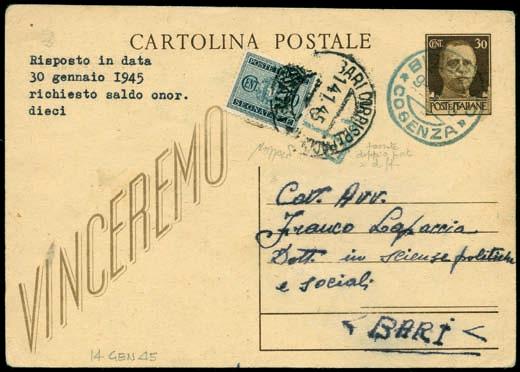 CARTOLINA POSTALE
Risposto in data
30 gennaio 1945
richiesto saldo onor.
dieci
CENT. 30
POSTE ITALIANE
COSENZA
POSTE
SEGNATASSE
14.1.45
VINCEREMO
Cav. Avv.
Franco Lapaccia
Dott. in scienze politiche
e sociali
BARI
14 GEN 45